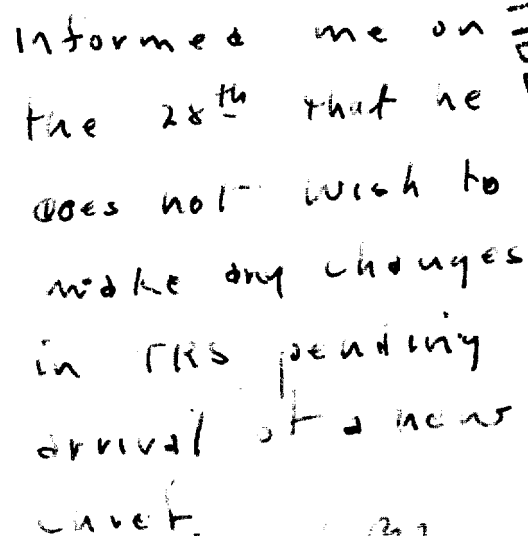 Informed me on
the 28th that he
does not wish to
make any changes
in TRS pending
arrival of a new
chief.